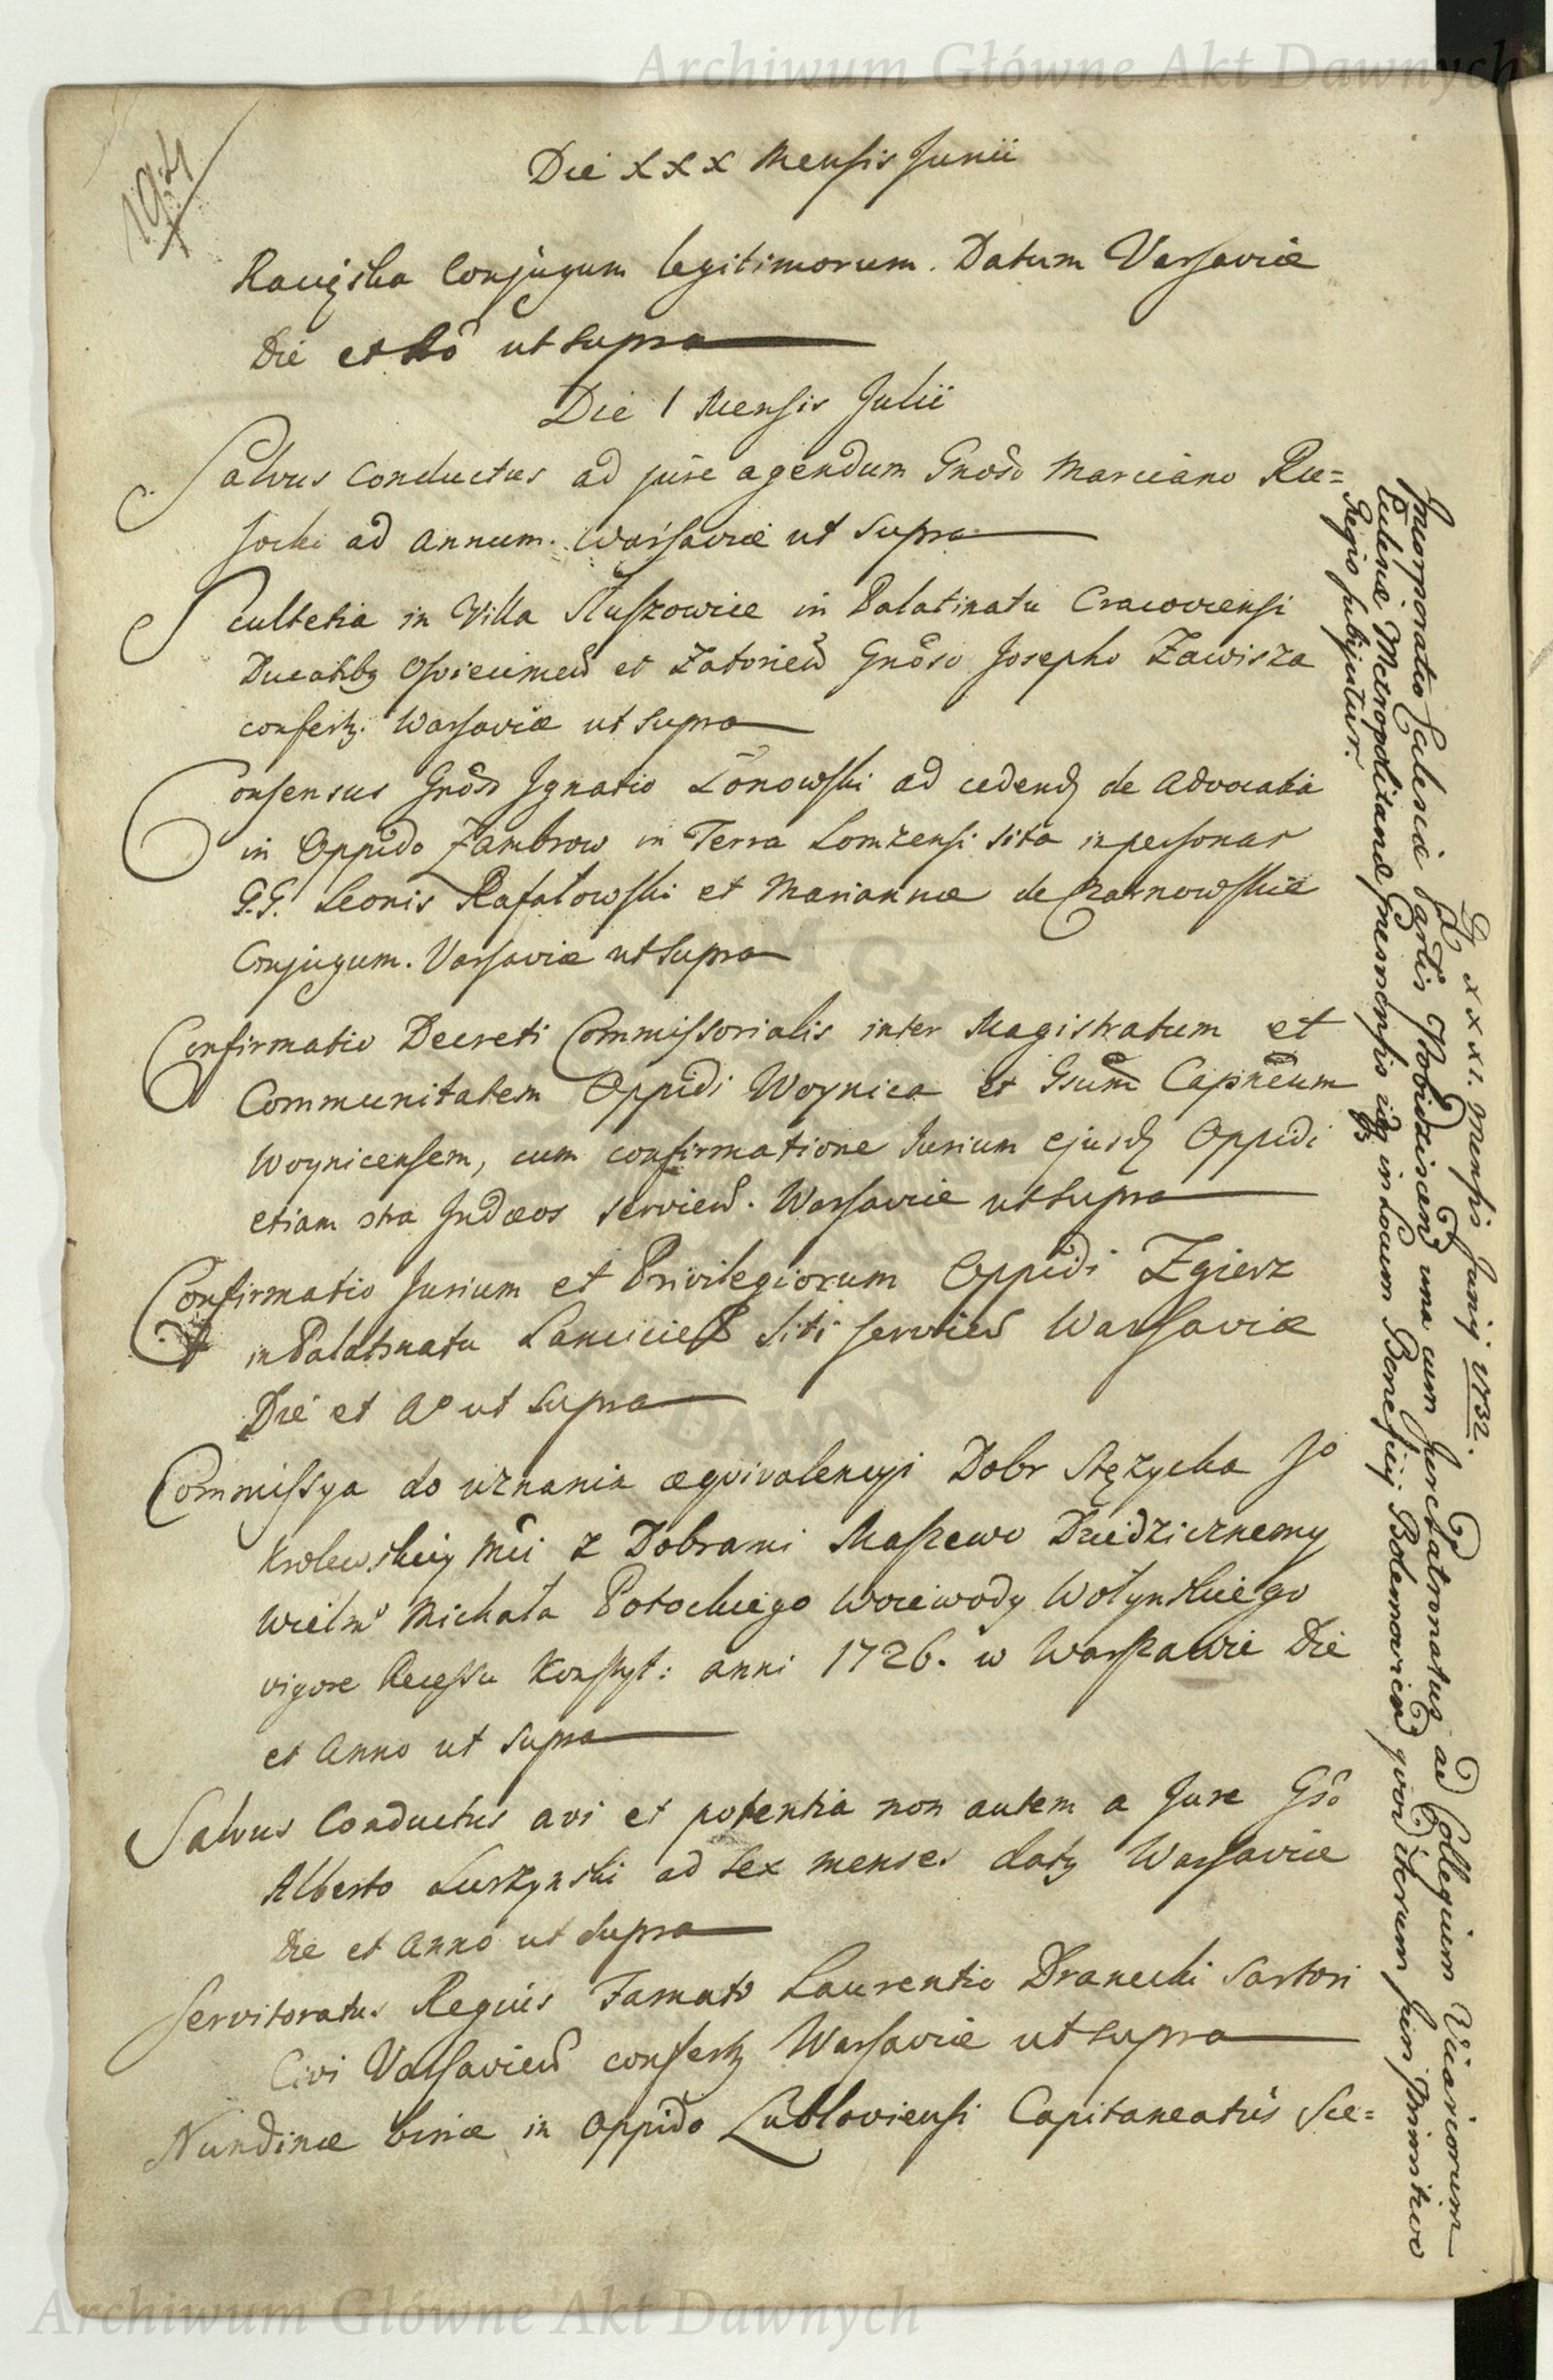 Archiwum Główne Akt Dawnych
194
Die XXX Mensis Junii
Conjugum legitimorum. Datum Varsaviæ
Die et Aõ ut supra
Die 1 Mensis Julii
Salvus Conductus ad jure agendum Gnõso Marciano Ru=
socki ad annum. Warsaviæ ut supra
Scultetia in Villa Słuszowice in Palatinatu Cracoviensi
Osviecimen̄ et Zatorien̄ Gnõso Josepho Zawisza
confertꝫ. Warsaviæ ut supra
Consensus Gnõso Ignatio Łonowski ad cedendꝫ de Advocatia
in Oppido Zambrow in Terra Lomzensi sita in personas
G.G. Leonis Rafałowski et Mariannæ de Czarnowskie
Conjugum. Varsaviæ ut supra
Confirmatio Decreti Commissorialis inter Magistratum et
Communitatem Oppidi Woynica et Gsum̄ Capnēum
Woynicensem, cum confirmatione Jurium ejusdꝫ Oppidi
etiam Judæos servien̄. Warsaviæ ut supra
Confirmatio Jurium et Privilegiorum Oppidi Zgierz
in Palatinatu Lancicien̄ siti servien̄ Warsaviæ
Die et Aº ut supra
Commissya do uznania æqvivalencyi Dobr Stęzycka Jº
Krolewskiey Mci z Dobrami Maszewo Dziedzicznemy
Wielmº Michała Potockiego Woiewody Wołynskiego
vigore Recessu Konstyt: anni 1726. w Warszawie Die
et Anno ut supra
Salvus Conductus a vi et potentia non autem a Jure Gsõ
Alberto Luszynski ad sex menses datꝫ Warsaviæ
Die et Anno ut supra
Servitoratus Regius Famato Laurentio Dranecki Sartori
Civi Varsavien̄ confertꝫ Warsaviæ ut supra
Nundinæ binæ in Oppido Lubloviensi Capitaneatus Sce=
D. XXXI. Mensis Junij 1732.
Incorporatio Ecclesiæ Parlis una cum Jure Patronatus ad Collegium Vicariorum
Ecclesiæ Metropolitanæ Gnesnensis in Locum Beneficij qvod iterum Juri Primitivo
Regio subijcitur.
Archiwum Główne Akt Dawnych